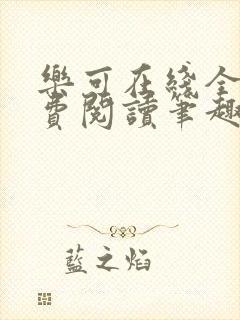 樂可在綫全
費閱讀筆趣
藍之焰